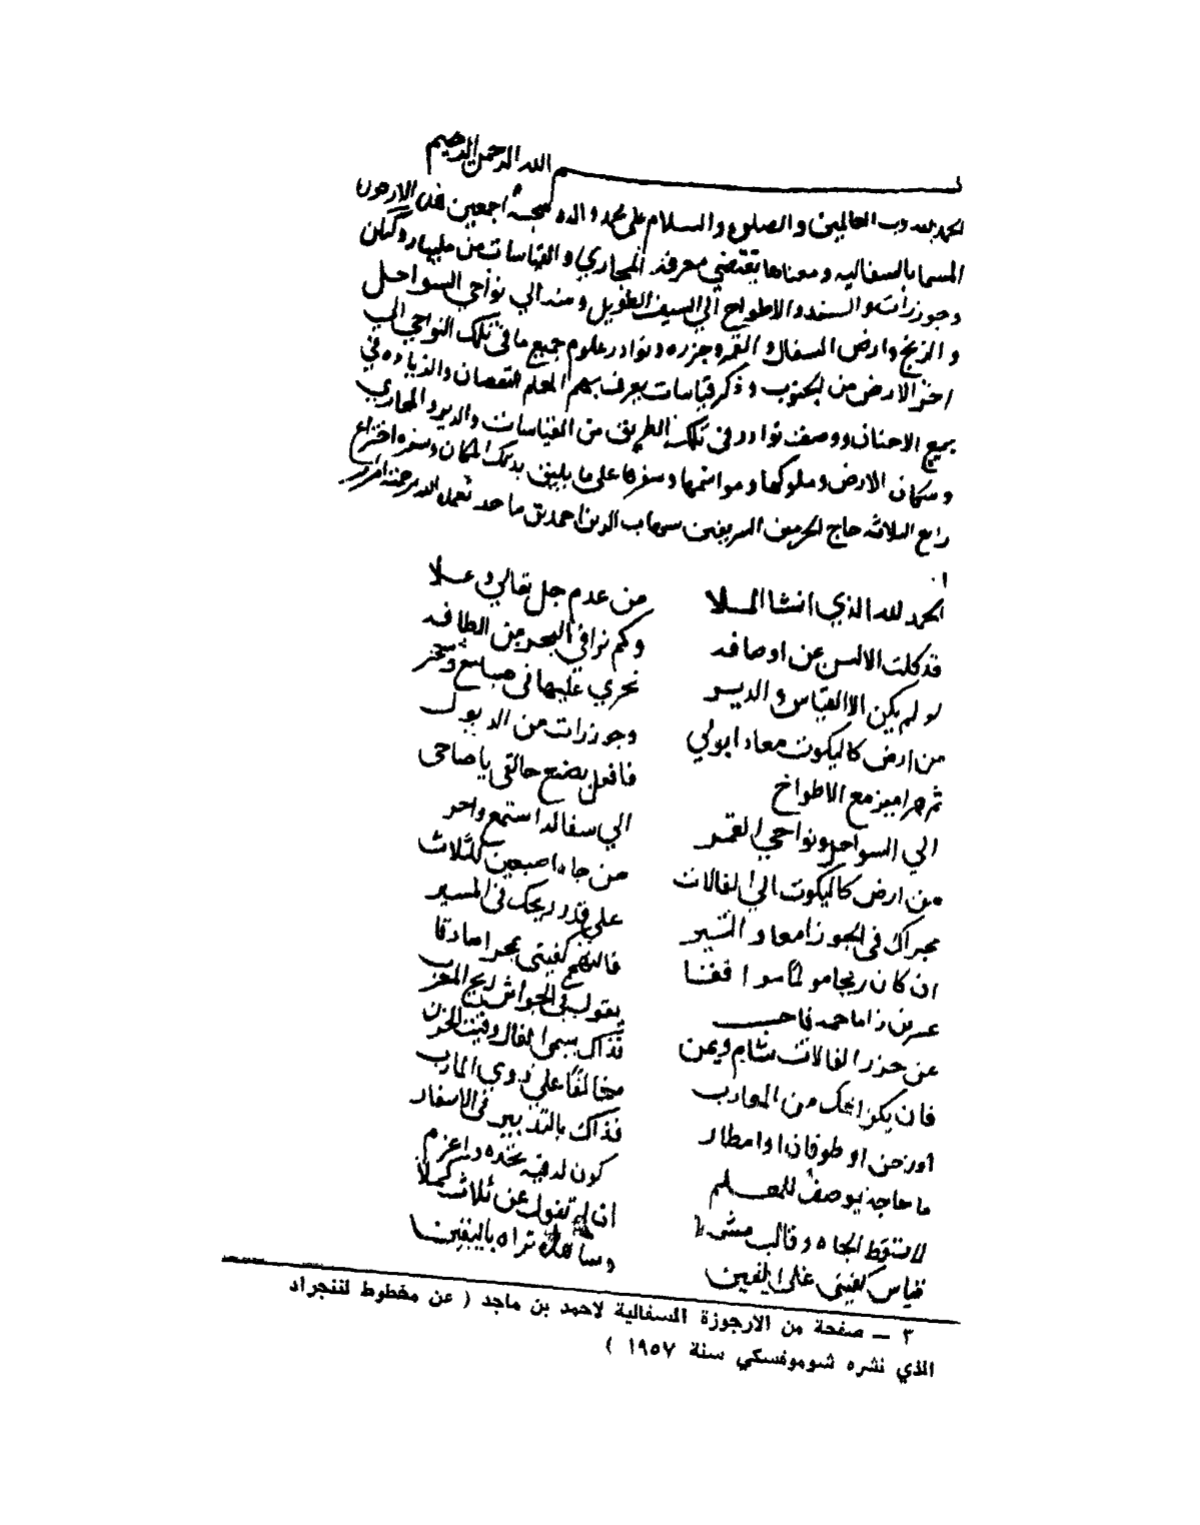 بسم الله الرحمن الرحيم
الحمد لله رب العالمين والصلوه والسلام على محمد واله وصحبه اجمعين هذه الارجوزه
المسماه بالسفاليه ومعناها يقتضي معرفة المجاري والقياسات من مليبار وكنكن
وجوزرات والسند والاطواح الي السيف الطويل ومنه الي نواحي السواحل
والزنج وارض السفال والقمر وجزره ونوادر علوم جميع ما في تلك النواحي الي
اخر الارض من الجنوب وذكر قياسات يعرف بهم المعلم النقصان والزياده في
جميع الاخنان ووصف نوادر في تلك الطريق من القياسات والديرو المجاري
وسكان الارض وملوكها ومواسمها وسفرها على ما يليق بذلك المكان وسفره اختراع
رابع الثلاثه حاج الحرمين الشريفين شهاب الدين احمد بن ماجد تغمده الله برحمته
الحمد لله الذي انشا المـلا من عدم جل تعالي وعـلا
قد كلت الالسن عن اوصافه وكم نرا في البحر من الطافه
لو لم يكن الا القياس والديـر نجري عليها في صباح وسحر
من ارض كاليكوت معا دابولي وجوزرات من الديول
ثم هراميز مع الاطواخ فافعل بضنع حالتي ياصاحي
الي السواحل ونواحي القمـر الي سفاله استمع واخر
من ارض كاليكوت الي الفالات من جاه اصبعين كالثلاث
مجراك في الجوزا معا والتير على قدر ريحك في المسير
ان كان ريحا مولما موافقـا فالنهم كفيتي مجرا صادقا
عن جزر الفالات شام ويمن فذاك يسمى الفال وقيت الحزن
فان يكن من المغارب مخالفا على ذوي المارب
او زحن او طوفان او امطار فذاك بالتدبير في الاسفار
ما حاجة يوصف للمعـلم
لاسقط الجاه وقالب
قياس كفيتي على اليقين تراه باليقين
٣ ــ صفحة من الارجوزة السفالية لاحمد بن ماجد ( عن مخطوط لننجراد
الذي نشره شوموفسكي سنة ١٩٥٧ )